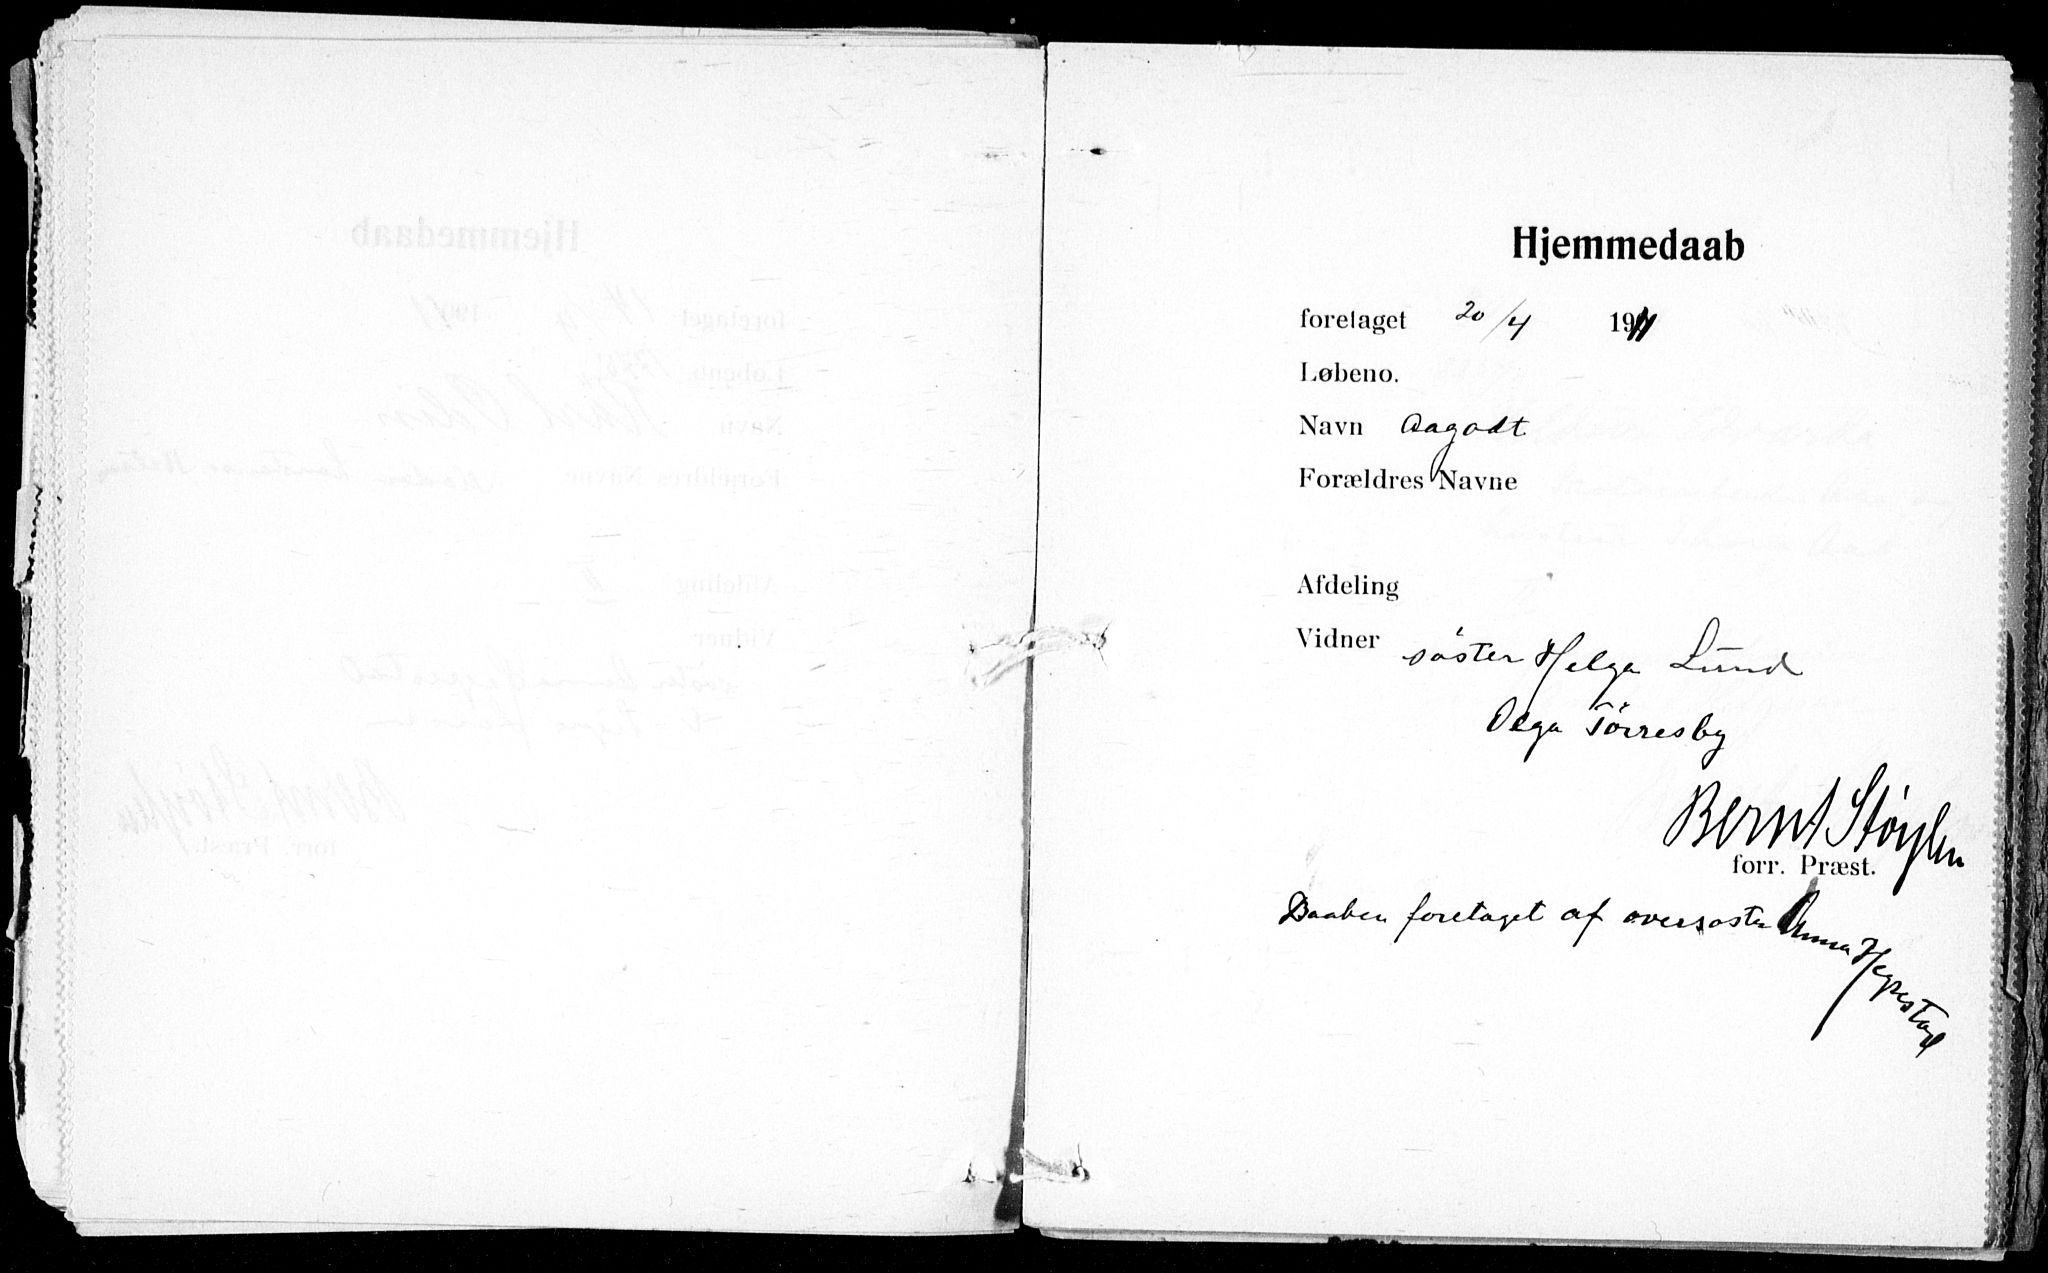 Hjemmedaab
foretaget 20/4 1911
Løbeno.
Navn Aagodt
Forældres Navne
Afdeling
Vidner søster Helga Lund
Olga Tørresby
Bernt Støylen
forr. Præst.
Daaben foretaget af oversøster Anna Hegrestad